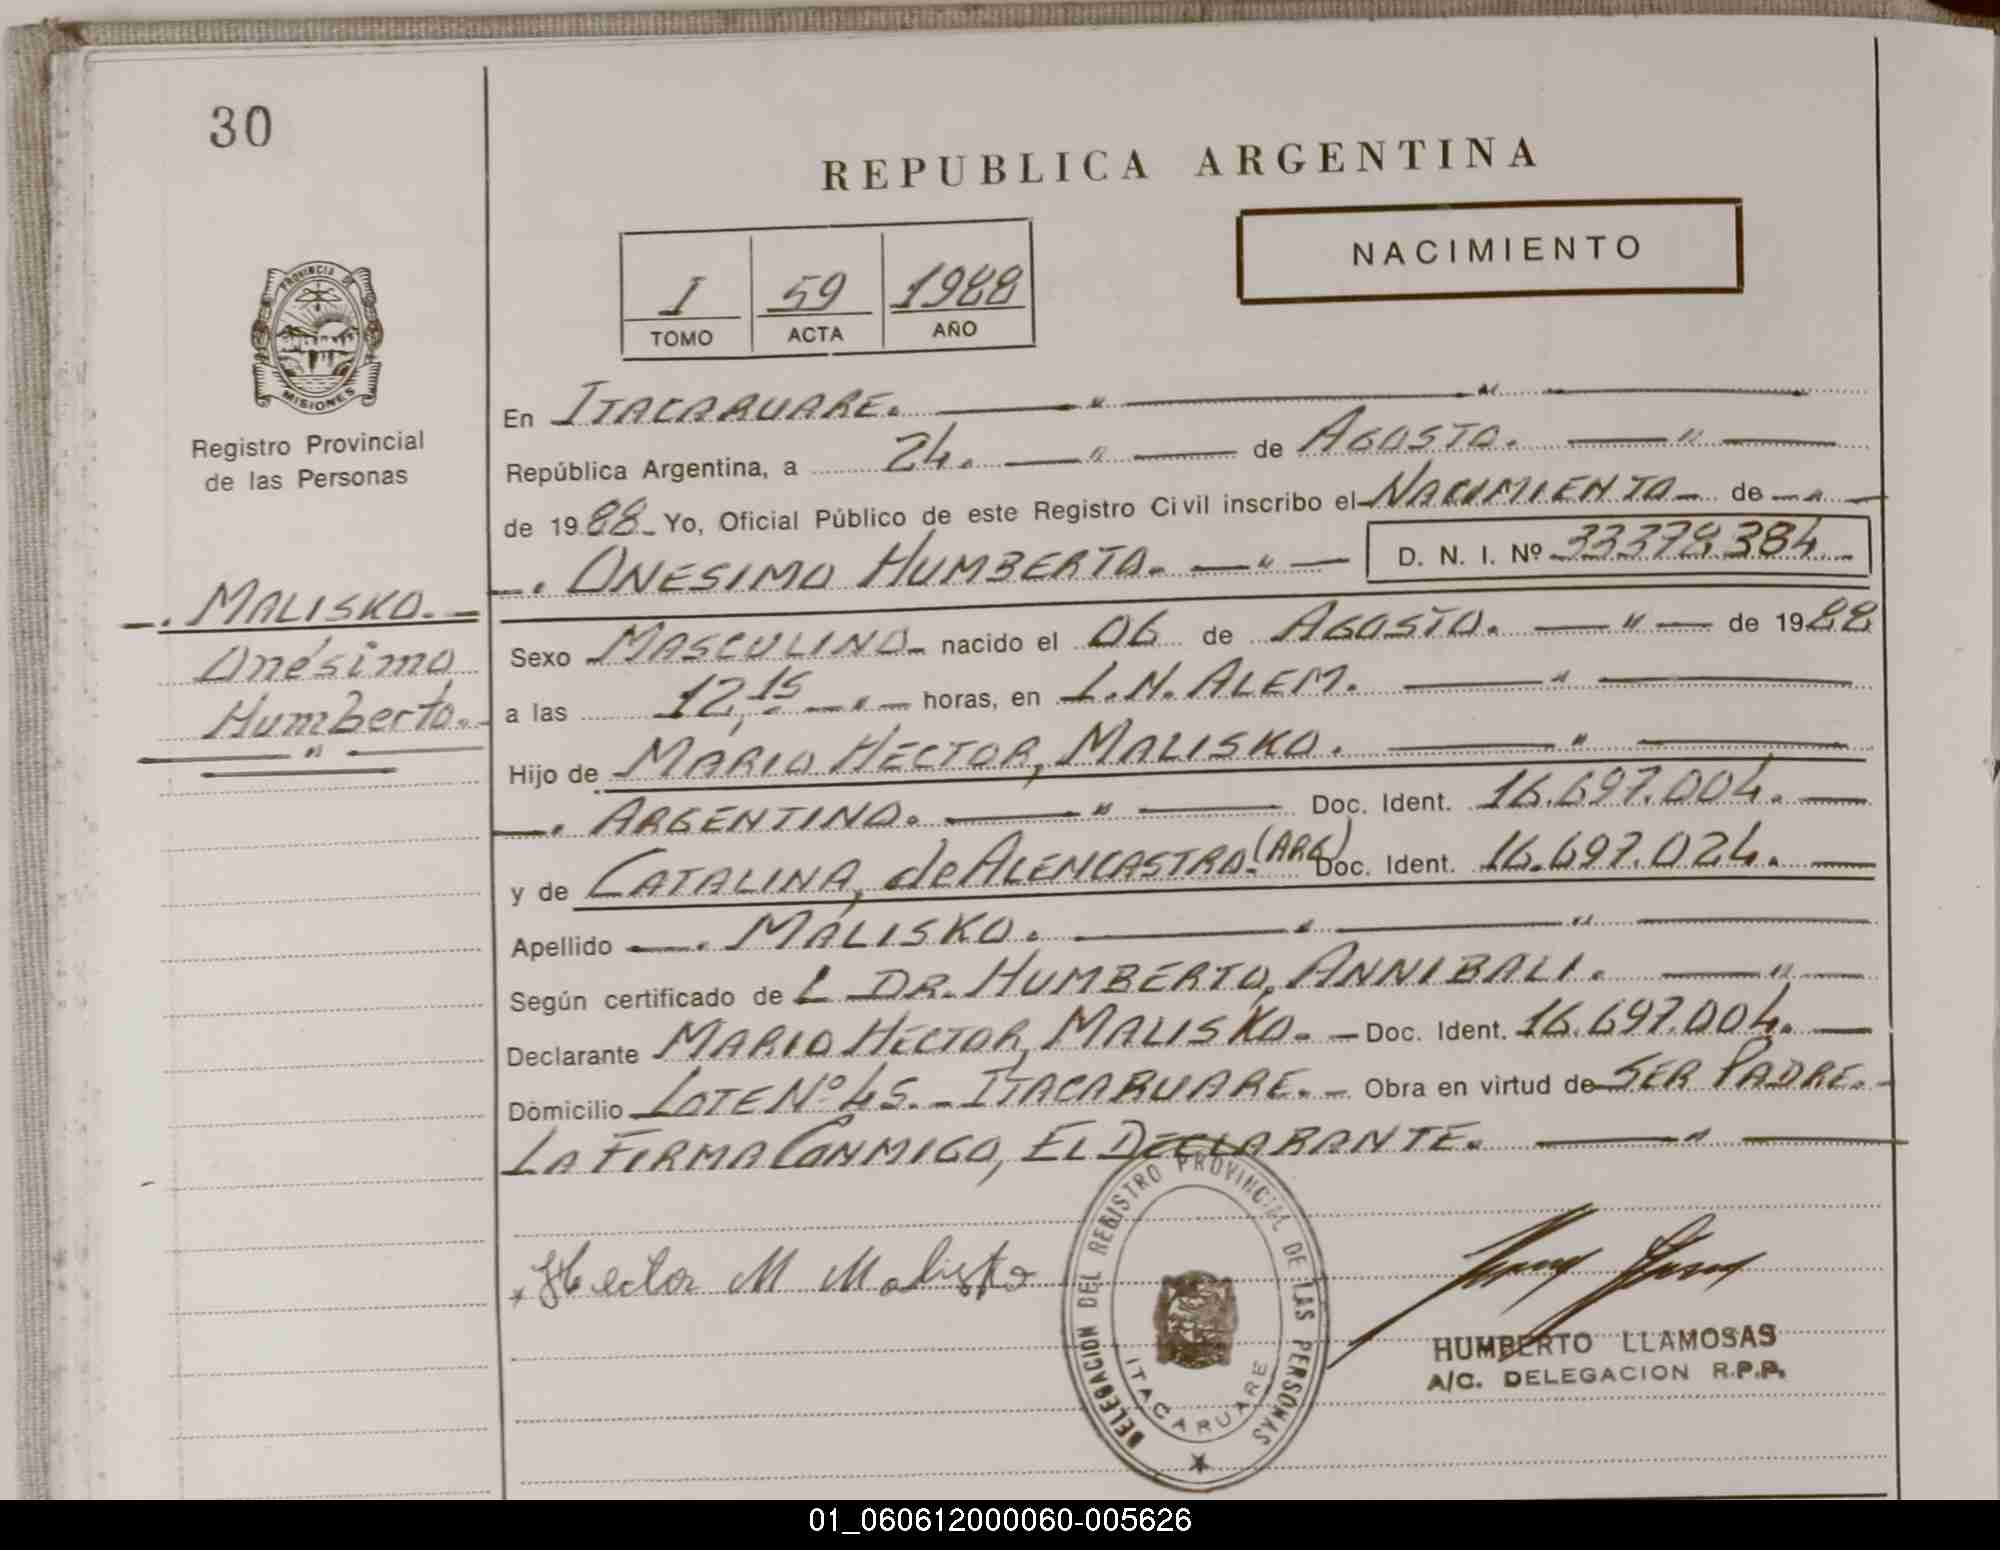 30
REPUBLICA ARGENTINA
NACIMIENTO
I 59 1988
TOMO ACTA AÑO
PROVINCIA DE
MISIONES
Registro Provincial
de las Personas
En ITACARUARE.
República Argentina, a 24. de AGOSTO.
de 1988 Yo, Oficial Público de este Registro Civil inscribo el NACIMIENTO de
ONESIMO HUMBERTO. D. N. I. Nº 33378384
MALISKO.
Onésimo
Humberto.
Sexo MASCULINO nacido el 06 de AGOSTO. de 1988
a las 12,15 horas, en L.N. ALEM.
Hijo de MARIO HECTOR, MALISKO.
ARGENTINO. Doc. Ident. 16.697.004.
y de CATALINA, de ALENCASTRO. (ARG) Doc. Ident. 16.697.024.
Apellido MALISKO.
Según certificado de L DR. HUMBERTO, ANNIBALI.
Declarante MARIO HECTOR, MALISKO. Doc. Ident. 16.697.004.
Domicilio LOTE Nº 45. ITACARUARE. Obra en virtud de SER PADRE.
LA FIRMA CONMIGO, EL DECLARANTE.
Hector M Malisko
DELEGACION DEL REGISTRO PROVINCIAL DE LAS PERSONAS
ITACARUARE
HUMBERTO LLAMOSAS
A/C. DELEGACION R.P.P.
01_060612000060-005626